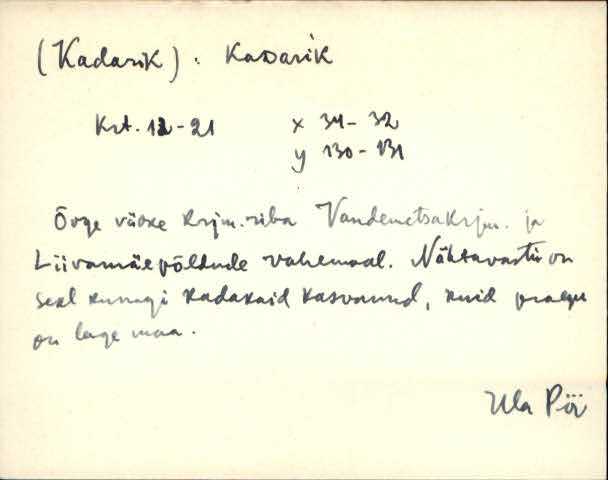 (Kadarik) : Kaᴅarik
Krt. 12-21 x 34-32
y 130-131
Õige väike krjm. riba Vandemetsa krjm. ja
Liivamäe põldude vahemaal. Nähtavasti on
seal kunagi kadakaid kasvanud, kuid praegu
on lage maa.
Ula Pöi